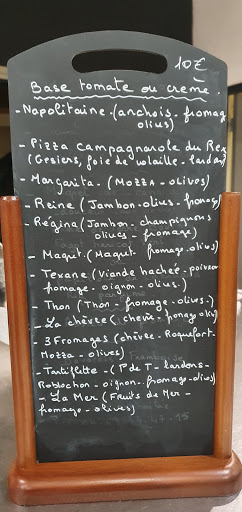 10€
Base tomate ou crème.
- Napolitaine. (anchois - fromage
olives)
- Pizza campagnarde du Rex
(Gesiers, foie de volaille - lardons
- Margarita. (Mozza - olives)
- Reine (Jambon - olives - fromage)
- Régina (Jambon - champignons
olives - fromage)
- Magret. (Magret - fromage - olives)
- Texane (Viande hachée - poivron
fromage - oignon - olives.)
- Thon (Thon - fromage - olives.)
- La chèvre (chèvre -
- 3 Fromages (chèvre - Roquefort -
Mozza - olives)
- Tartiflette - (P de T - lardons -
Reblochon - oignon - fromage - olives)
- La Mer (Fruits de Mer -
fromage - olives)